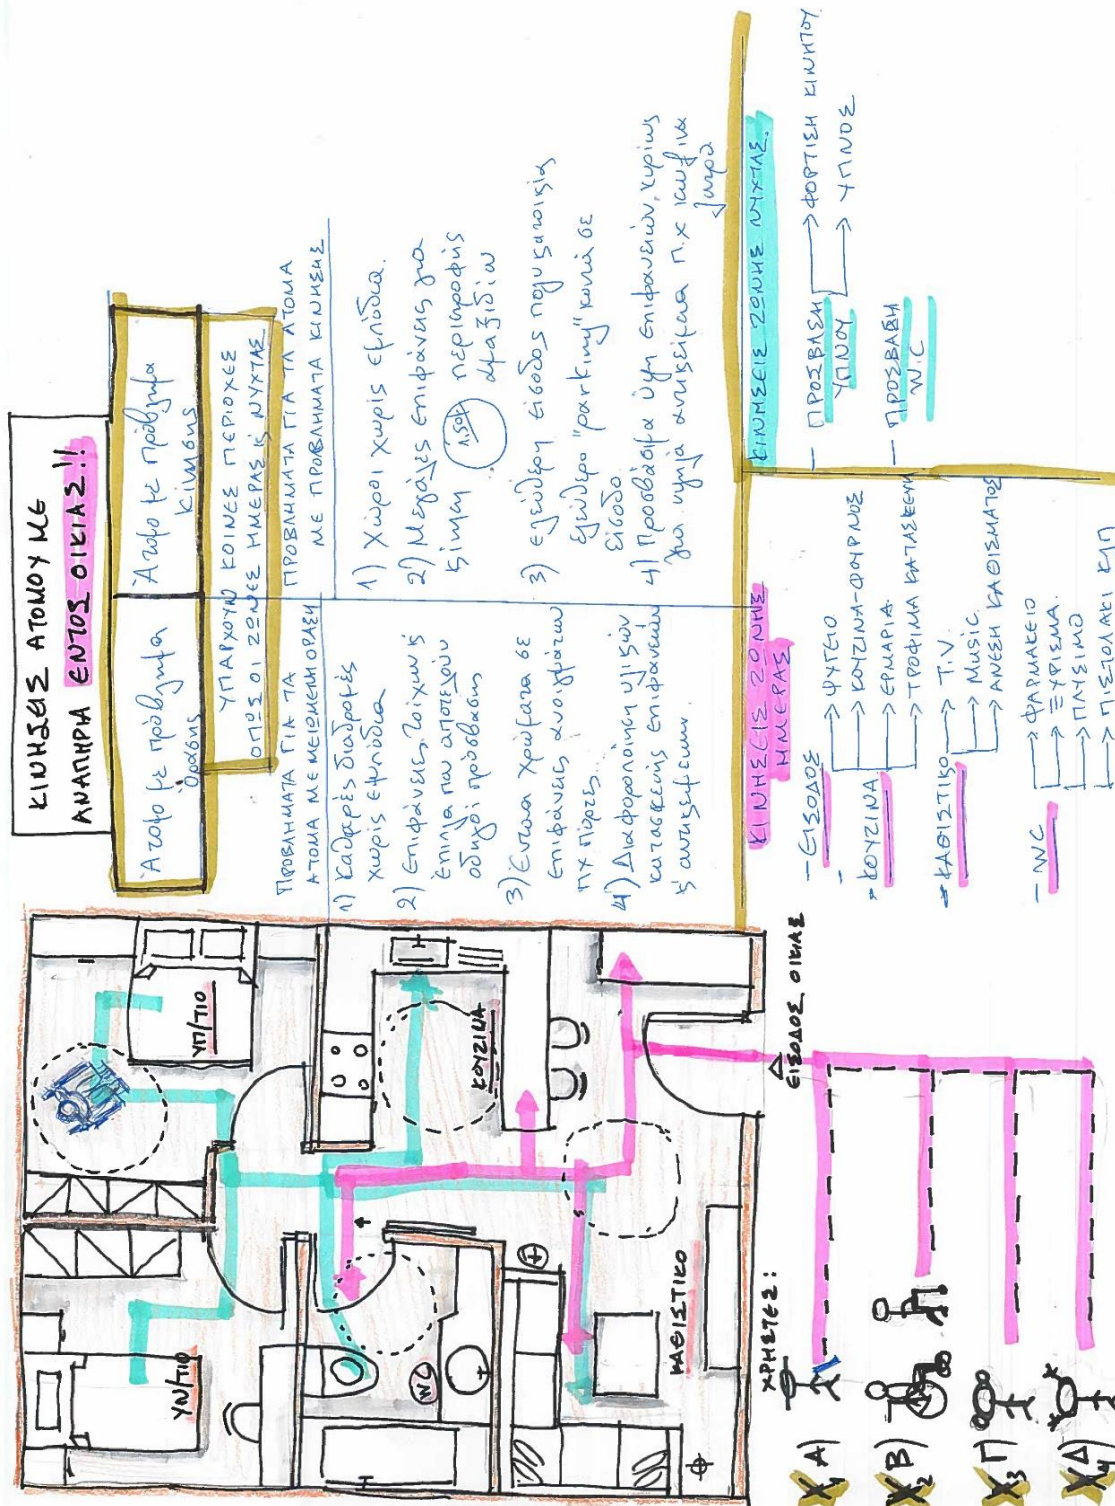 ΚΙΝΗΣΕΙΣ ΑΤΟΜΟΥ ΜΕ
ΑΝΑΠΗΡΙΑ ΕΝΤΟΣ ΟΙΚΙΑΣ!!
Άτομο με πρόβλημα
όρασης
Άτομο με πρόβλημα
κίνησης
ΥΠΑΡΧΟΥΝ ΚΟΙΝΕΣ ΠΕΡΙΟΧΕΣ
ΟΠΩΣ ΟΙ ΖΩΝΕΣ ΗΜΕΡΑΣ & ΝΥΧΤΑΣ
ΠΡΟΒΛΗΜΑΤΑ ΓΙΑ ΤΑ
ΑΤΟΜΑ ΜΕ ΜΕΙΩΜΕΝΗ ΟΡΑΣΗ
1) Καθαρές διαδρομές
χωρίς εμπόδια
2) Επιφάνειες τοίχων &
έπιπλα που αποτελούν
οδηγοί πρόσβασης
3) Έντονα χρώματα σε
επιφάνειες ανοιγμάτων
πχ πόρτες
4) Διαφοροποίηση υλικών
κατασκευής επιφανειών
& αντικειμένων.
ΠΡΟΒΛΗΜΑΤΑ ΓΙΑ ΤΑ ΑΤΟΜΑ
ΜΕ ΠΡΟΒΛΗΜΑΤΑ ΚΙΝΗΣΗΣ
1) Χώροι χωρίς εμπόδια.
2) Μεγάλες επιφάνειες για
κίνηση 1.50 περιστροφής
αμαξιδίου
3) ελεύθερη είσοδος πολυκατοικίας
ελεύθερο "parking" κοντά σε
είσοδο
4) Προσβάσιμα ύψη επιφανειών, κυρίως
για υψηλά αντικείμενα π.χ κουζίνα
ΚΙΝΗΣΕΙΣ ΖΩΝΗΣ
ΗΜΕΡΑΣ
- ΕΙΣΟΔΟΣ
- ΚΟΥΖΙΝΑ
→ ΨΥΓΕΙΟ
→ ΚΟΥΖΙΝΑ-ΦΟΥΡΝΟΣ
→ ΕΡΜΑΡΙΑ
→ ΤΡΟΦΙΜΑ ΚΑΤΑΣΚΕΥΗ
- ΚΑΘΙΣΤΙΚΟ
→ T.V.
→ Music
→ ΑΝΕΣΗ ΚΑΘΙΣΜΑΤΟΣ
- WC
→ ΦΑΡΜΑΚΕΙΟ
→ ΞΥΡΙΣΜΑ
→ ΠΛΥΣΙΜΟ
→ ΠΙΣΤΟΛΑΚΙ ΚΛΠ
ΚΙΝΗΣΕΙΣ ΖΩΝΗΣ ΝΥΧΤΑΣ.
- ΠΡΟΣΒΑΣΗ
ΥΠΝΟΥ
→ ΦΟΡΤΙΣΗ ΚΙΝΗΤΟΥ
→ ΥΠΝΟΣ
- ΠΡΟΣΒΑΣΗ
W.C
ΥΠ/ΤΙΟ
ΥΠ/ΤΙΟ
ΚΟΥΖΙΝΑ
WC
ΚΑΘΙΣΤΙΚΟ
ΕΙΣΟΔΟΣ ΟΙΚΙΑΣ
ΧΡΗΣΤΕΣ:
X1 Α)
X2 Β)
X3 Γ)
X4 Δ)